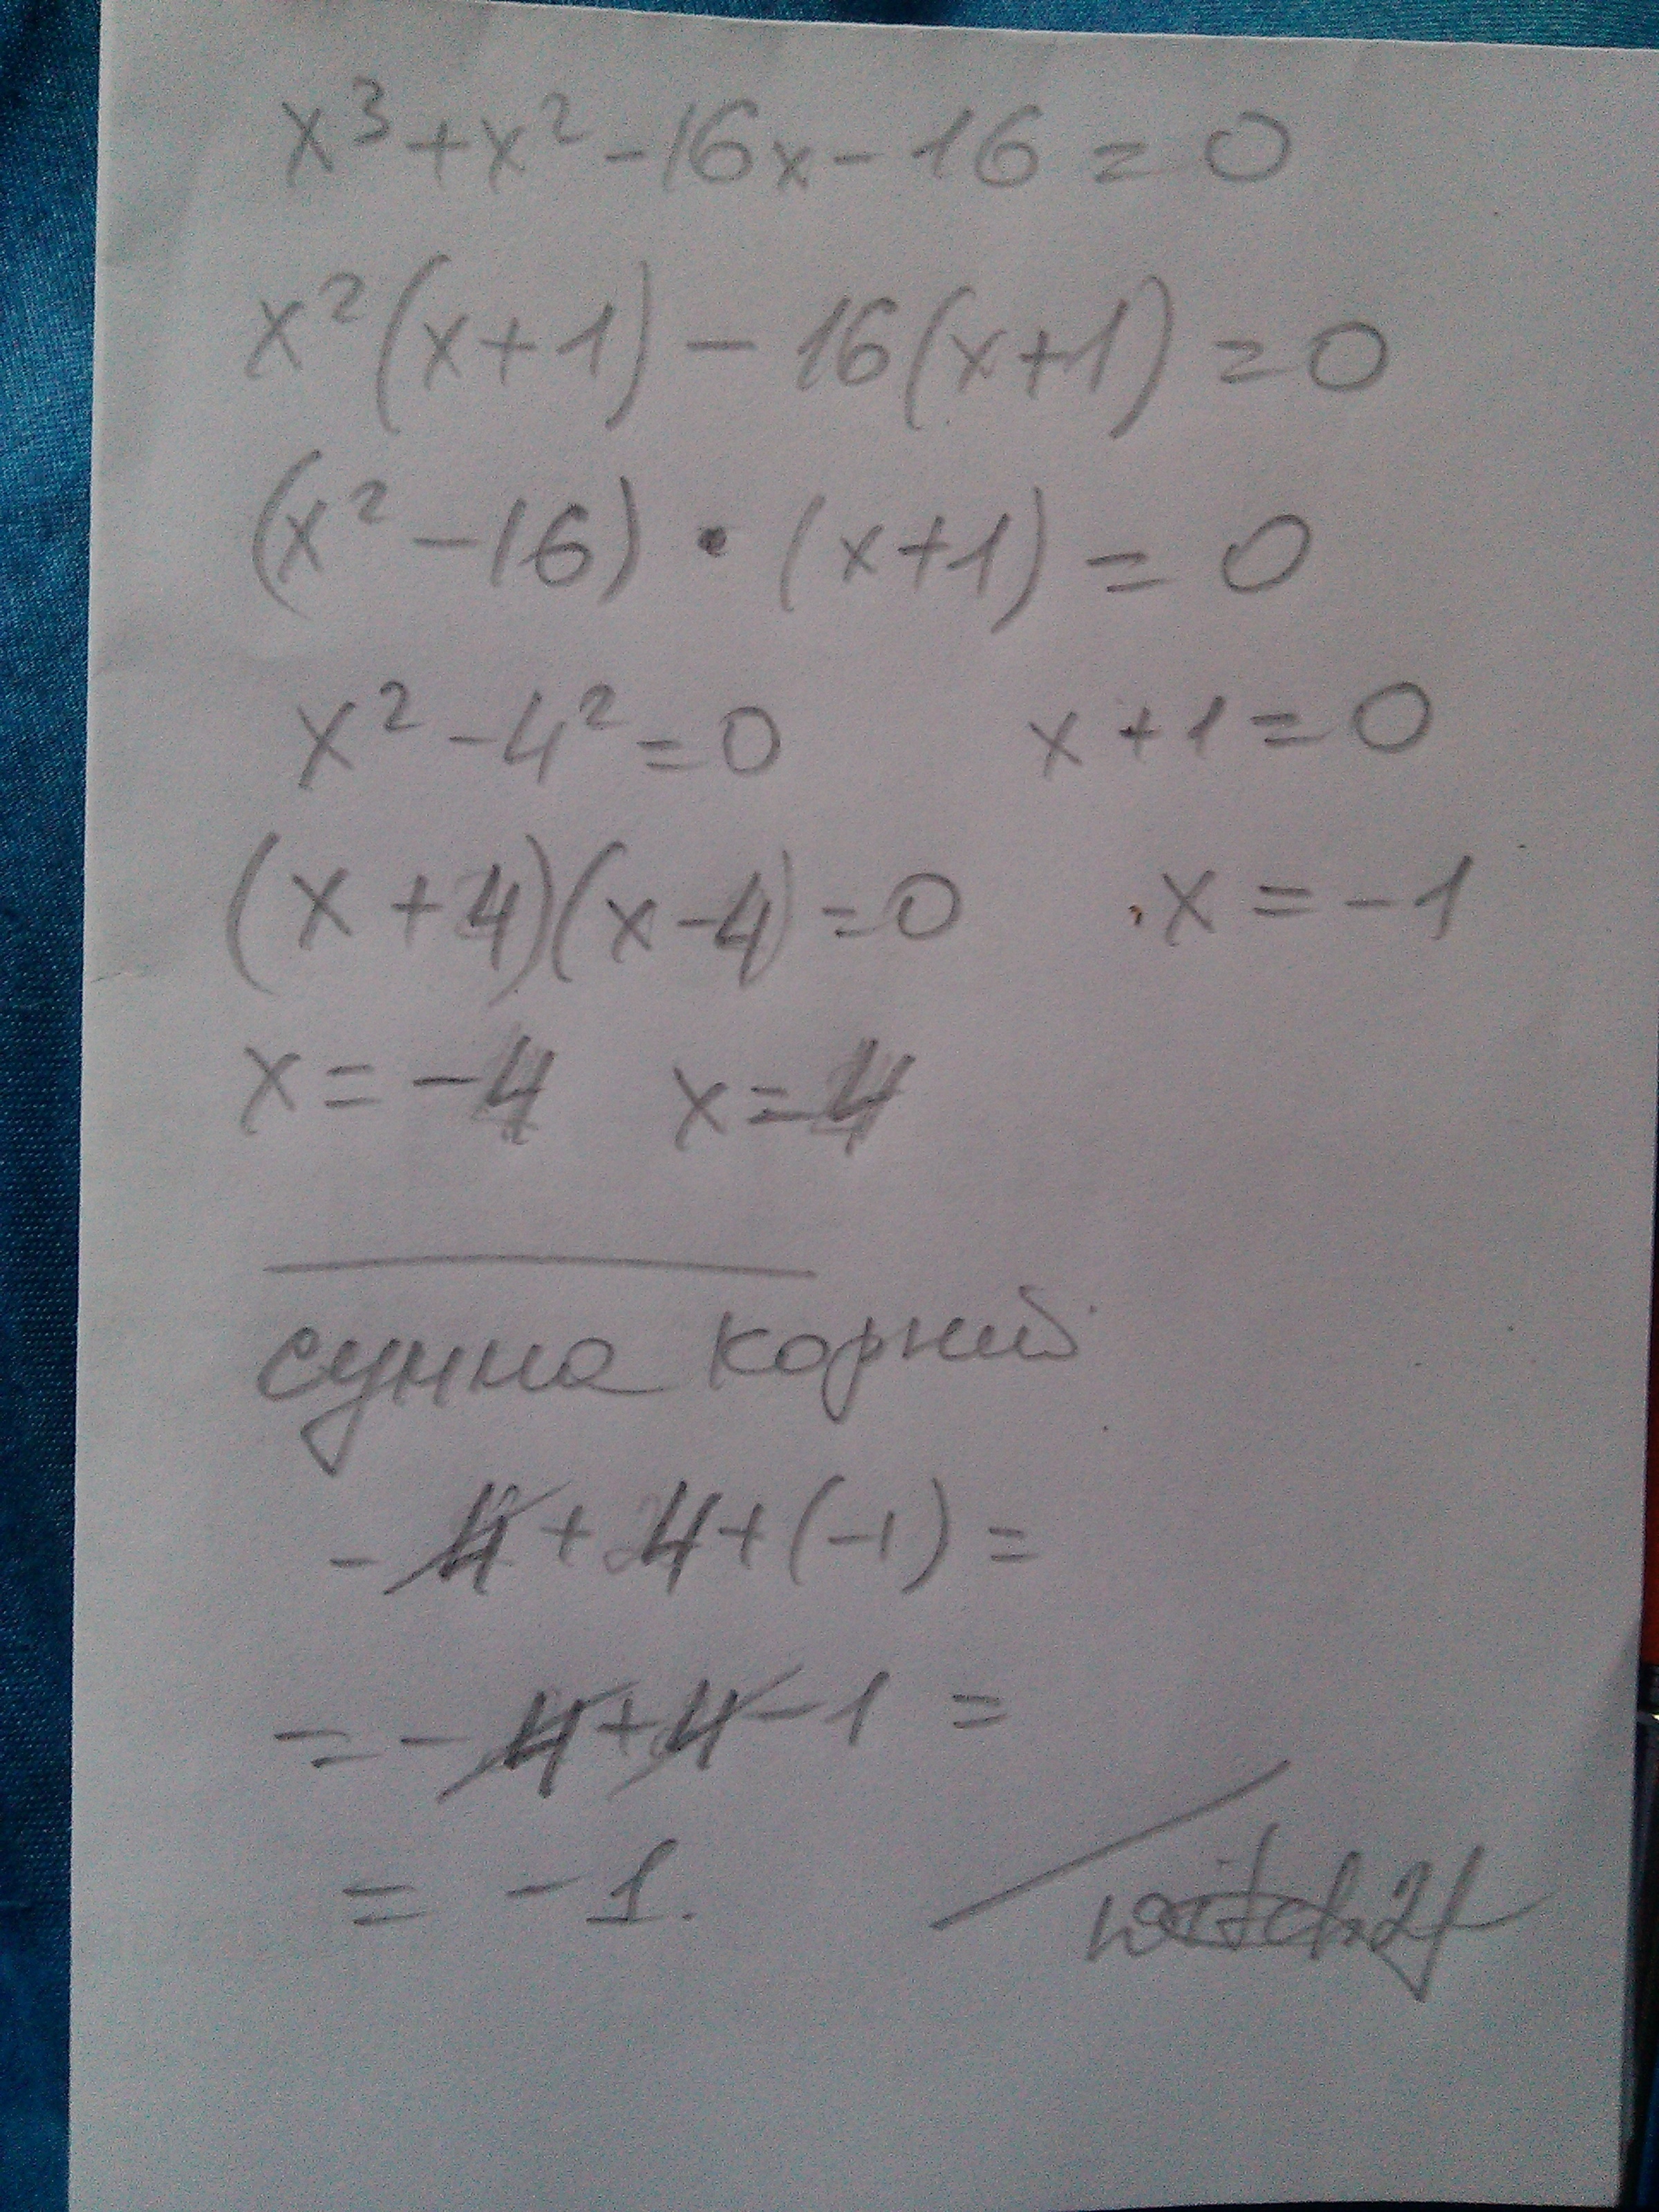 x³+x²-16x-16=0
x²(x+1)-16(x+1)=0
(x²-16)·(x+1)=0
x²-4²=0 x+1=0
(x+4)(x-4)=0 x=-1
x=-4 x=4
сумма корний
-4+4+(-1)=
=-4+4-1=
=-1.